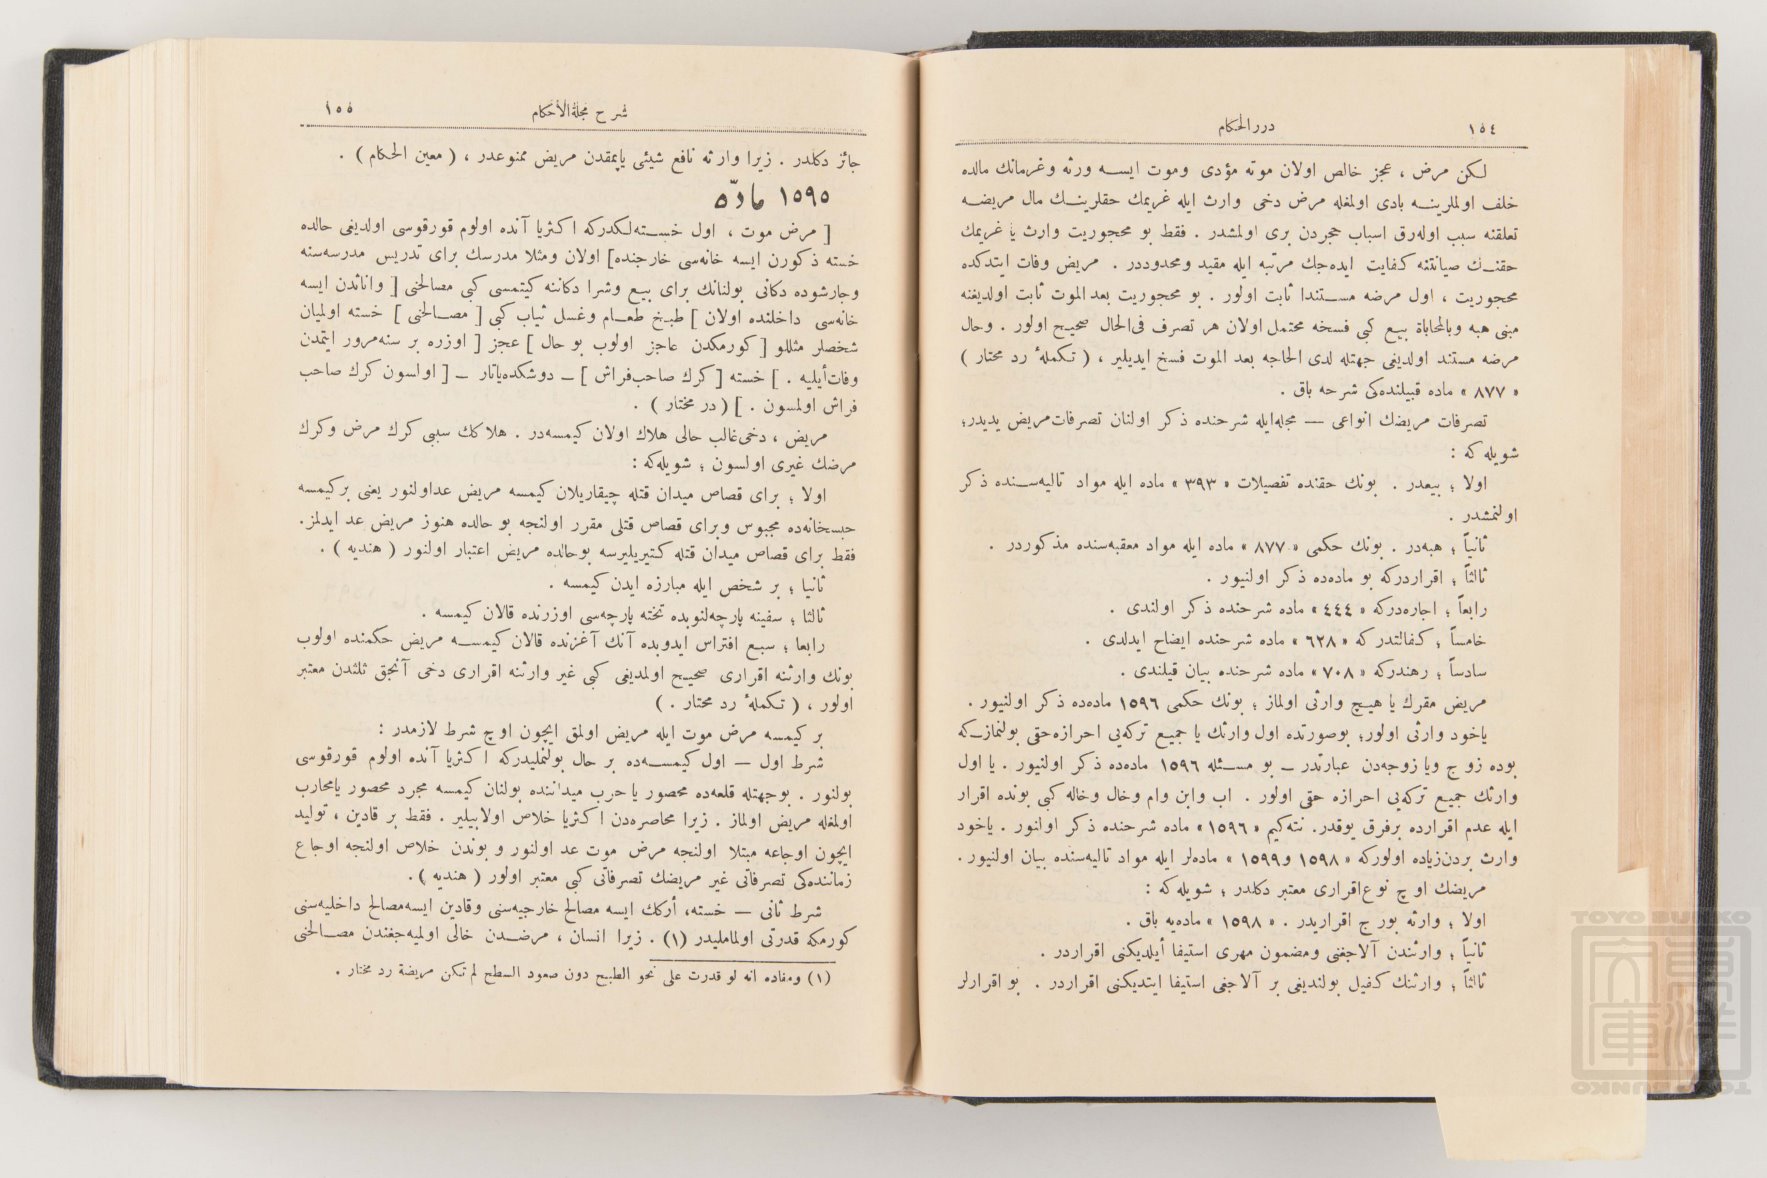 ١٥٤
درر الحكام
لكن مرض ، عجز خالص اولان موته مؤدى وموت ايسه ورثه وغرمانك مالده
خلف اولملرينه بادى اولمغله مرض دخى وارث ايله غريمك حقلرينك مال مريضه
تعلقنه سبب اوله‌رق اسباب حجردن برى اولمشدر . فقط بو محجوريت وارث يا غريمك
حقنك صيانتنه كفايت ايده‌جك مرتبه ايله مقيد ومحدوددر . مريض وفات ايتدكده
محجوريت ، اول مرضه مستندا ثابت اولور . بو محجوريت بعد الموت ثابت اولديغنه
مبنى هبه وبالمحاباة بيع كبى فسخه محتمل اولان هر تصرف فى‌الحال صحيح اولور . وحال
مرضه مستند اولديغى جهتله لدى الحاجه بعد الموت فسخ ايديلير ، ( تكملهٔ رد محتار )
« ٨٧٧ » ماده قبيلنده‌كى شرحه باق .
تصرفات مريضك انواعى — مجله‌ايله شرحنده ذكر اولنان تصرفات‌مريض يديدر؛
شويله كه :
اولا ؛ بيعدر . بونك حقنده تفصيلات « ٣٩٣ » ماده ايله مواد تاليه‌سنده ذكر
اولنمشدر .
ثانياً ؛ هبه‌در . بونك حكمى « ٨٧٧ » ماده ايله مواد معقبه‌سنده مذكوردر .
ثالثاً ؛ اقراردركه بو ماده‌ده ذكر اولنيور .
رابعاً ؛ اجاره‌دركه « ٤٤٤ » ماده شرحنده ذكر اولندى .
خامساً ؛ كفالتدر كه « ٦٢٨ » ماده شرحنده ايضاح ايدلدى .
سادساً ؛ رهندركه « ٧٠٨ » ماده شرحنده بيان قيلندى .
مريض مقرك يا هيچ وارثى اولماز ؛ بونك حكمى ١٥٩٦ ماده‌ده ذكر اولنيور .
ياخود وارثى اولور؛ بوصورتده اول وارثك يا جميع تركه‌يى احرازه‌حقى بولنماز كه
بوده زوج ويا زوجه‌دن عبارتدر ـ بو مسئله ١٥٩٦ ماده‌ده ذكر اولنيور . يا اول
وارثك جميع تركه‌يى احرازه حقى اولور . اب وابن وام وخال وخاله كبى بونده اقرار
ايله عدم اقرارده برفرق يوقدر. نته‌كيم « ١٥٩٦ » ماده شرحنده ذكر اولنور . ياخود
وارث بردن‌زياده اولوركه « ١٥٩٨ و١٥٩٩ » ماده‌لر ايله مواد تاليه‌سنده بيان اولنيور .
مريضك اوچ نوع‌اقرارى معتبر دكلدر ؛ شويله كه :
اولا ؛ وارثه بورج اقراريدر . « ١٥٩٨ » ماده‌يه باق .
ثانياً ؛ وارثندن آلاجغنى ومضمون مهرى استيفا أيلديكنى اقراردر .
ثالثاً ؛ وارثنك كفيل بولنديغى بر آلاجغى استيفا ايتديكنى اقراردر . بو اقرارلر
شرح مجلة‌الأحكام
١٥٥
جائز دكلدر . زيرا وارثه نافع شيئى ياپمقدن مريض ممنوعدر ، ( معين الحكام ) .
١٥٩٥ مادّه
[ مرض موت ، اول خسته‌لكدركه اكثريا آنده اولوم قورقوسى اولديغى حالده
خسته ذكورن ايسه خانه‌سى خارجنده] اولان ومثلا مدرسك براى تدريس مدرسه‌سنه
وجارشوده دكانى بولنانك براى بيع وشرا دكاننه كيتمسى كبى مصالحنى [ واناثدن ايسه
خانه‌سى داخلنده اولان ] طبخ طعام وغسل ثياب كبى [ مصالحنى ] خسته اولميان
شخصلر مثللو [ كورمكدن عاجز اولوب بو حال ] عجز [ اوزره بر سنه‌مرور ايتمدن
وفات‌أيليه . ] خسته [ كرك صاحب‌فراش ] ـ دوشكده‌ياتار ـ [ اولسون كرك صاحب
فراش اولمسون . ] ( در مختار ) .
مريض ، دخى‌غالب حالى هلاك اولان كيمسه‌در . هلاكك سببى كرك مرض وكرك
مرضك غيرى اولسون ؛ شويله‌كه :
اولا ؛ براى قصاص ميدان قتله چيقاريلان كيمسه مريض عداولنور يعنى بركيمسه
حبسخانه‌ده محبوس وبراى قصاص قتلى مقرر اولنجه بو حالده هنوز مريض عد ايدلمز.
فقط براى قصاص ميدان قتله كتيريليرسه بوحالده مريض اعتبار اولنور ( هنديه ) .
ثانيا ؛ بر شخص ايله مبارزه ايدن كيمسه .
ثالثا ؛ سفينه پارچه‌لنوبده تخته پارچه‌سى اوزرنده قالان كيمسه .
رابعا ؛ سبع افتراس ايدوبده آنك آغزنده قالان كيمسه مريض حكمنده اولوب
بونك وارثنه اقرارى صحيح اولمديغى كبى غير وارثنه اقرارى دخى آنجق ثلثدن معتبر
اولور ، ( تكملهٔ رد محتار . )
بر كيمسه مرض موت ايله مريض اولمق ايچون اوچ شرط لازمدر :
شرط اول — اول كيمسه‌ده بر حال بولنمليدركه اكثريا آنده اولوم قورقوسى
بولنور . بوجهتله قلعه‌ده محصور يا حرب ميداننده بولنان كيمسه مجرد محصور يامحارب
اولمغله مريض اولماز . زيرا محاصره‌دن اكثريا خلاص اولابيلير . فقط بر قادين ، توليد
ايچون اوجاعه مبتلا اولنجه مرض موت عد اولنور و بوندن خلاص اولنجه اوجاع
زماننده‌كى تصرفاتى غير مريضك تصرفاتى كبى معتبر اولور ( هنديه ) .
شرط ثانى — خسته، أركك ايسه مصالح خارجيه‌سنى وقادين ايسه‌مصالح داخليه‌سنى
كورمكه قدرتى اولماملیدر (١) . زيرا انسان ، مرضدن خالى اولميه‌جغندن مصالحنى
(١) ومفاده انه لو قدرت على نحو الطبيخ دون صعود السطح لم تكن مريضة رد محتار .
TOYO BUNKO
TOYO BUNKO